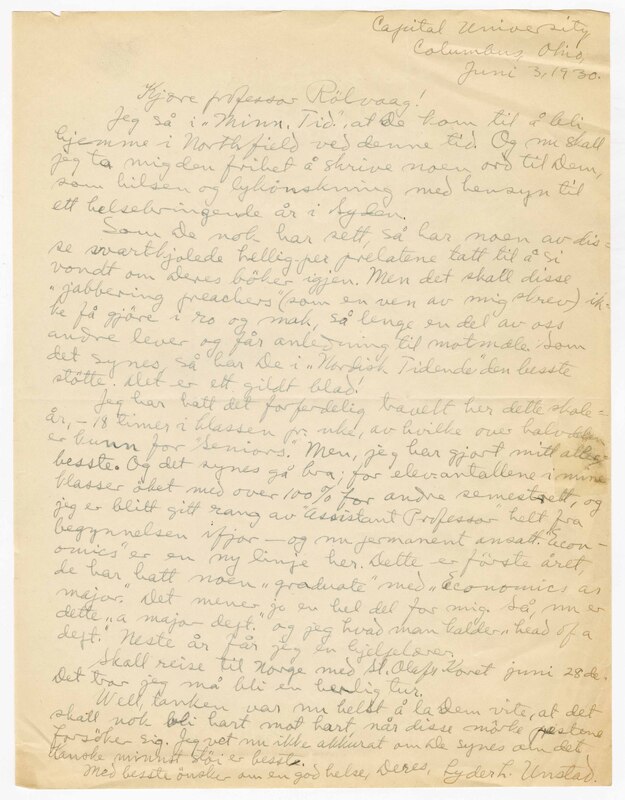 Capital University
Columbus, Ohio,
Juni 3, 1930.
Kjære professor Rölvaag!
Jeg så i "Minn. Tid." at De kom til å bli
hjemme i Northfield ved denne tid. Og nu skall
jeg ta mig den frihet å skrive noen ord til Dem,
som hilsen og lykönskning med hensyn til
ett helsebringende år i Syden.
Som De nok har sett, så har noen av dis-
se svartkjolede hellig-per prelatene tatt til å si
vondt om Deres böker igjen. Men det skall disse
"jabbering preachers (som en ven av mig skrev) ik-
ke få gjöre i ro og mak, så lenge en del av oss
andre lever og får anledning til motmæle. Som
det synes, så har De i "Nordisk Tidende" den besste
stötte. Det er ett gildt blad!
Jeg har hatt det forferdelig travelt her dette skole-
år, – 18 timer i klassen pr. uke, av hvilke over halvdelen
er kunn for "seniors." Men, jeg har gjort mitt aller-
besste. Og det synes gå bra; for elevantallene i mine
klasser öket med over 100% for andre semestrett, og
jeg er blitt gitt rang av "Assistant Professor" helt fra
begynnelsen ifjor – og nu permanent ansatt. "Econ-
omics" er en ny linje her. Dette er förste året,
de har hatt noen "graduate" med "Economics as
major." Det mener jo en hel del for mig. Så nu er
dette "a major dept." og jeg hvad man kalder "head of a
dept." Neste år får jeg en hjelpelærer.
Skall reise til Norge med St. Olafs Koret juni 28de.
Det tror jeg må bli en herlig tur.
Well, tanken var nu helst å la Dem vite, at det
skall nok bli hart mot hart når disse mörke pestene
forsöker sig. Jeg vet nu ikke akkurat om De synes om det
kanske minnst stöi er besste.
Med besste önsker om en god helse, Deres, Lyder L. Unstad.